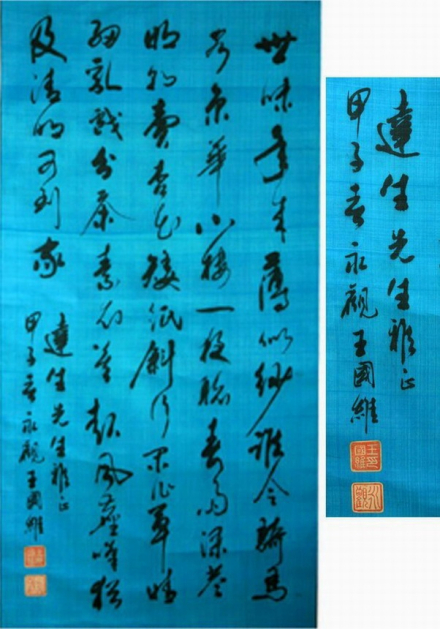 世味年来薄似紗誰令騎馬
客京華小樓一夜聽春雨深巷
明朝賣杏花矮紙斜行閑作草晴
細乳戲分茶素衣莫起風塵嘆猶
及清明可到家
達生先生雅正
甲子春永觀王國維
達生先生雅正
甲子春永觀王國維